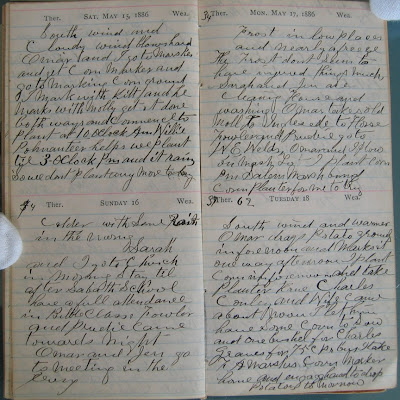 Ther. SAT. MAY 15, 1886 Wea.
South wind and
Cloudy wind blows hard
Omar and I go to Marshes
and get Corn Marker and
go to Marking Corn ground
I Mark with Kitt and he
Marks with Molly get it done
both ways and Commence to
plant at 10 Oclock Am Willie
helps us plant
til 3 Oclock Pm and it rains
So we dont plant any more to day
Ther. SUNDAY 16 Wea.
Colder with Some Rain
in the Morning
Sarah
and I go to Church
in Morning Stay til
after Sabath School
have a full attendance
in Bible Class Fowler
and Prudie Came
towards night
Omar and Jen go
to Meeting in the
Ther. MON. MAY 17, 1886 Wea.
frost in low places
and nearly a freeze
The frost dont Seem to
have injured things much
Sarah and Jen are
Cleaning House and
washing Omar takes old
to Horse
Fowler and Prudie go to
W E Welds Omar and I plow
I plant Corn
Am
Corn planter for me to try
Ther. 62 TUESDAY 18 Wea.
South wind and warmer
Omar drags Potato ground
in forenoon and Marks it
one way afternoon I plant
Corn in forenoon and take
planter home Charles
and Wife Came
about Noon I let him
have some Corn to Sow
and one bushel for Charles
Graves for 75 Cts
Marshes Corn Marker
home and to drop
Potatoes to morrow